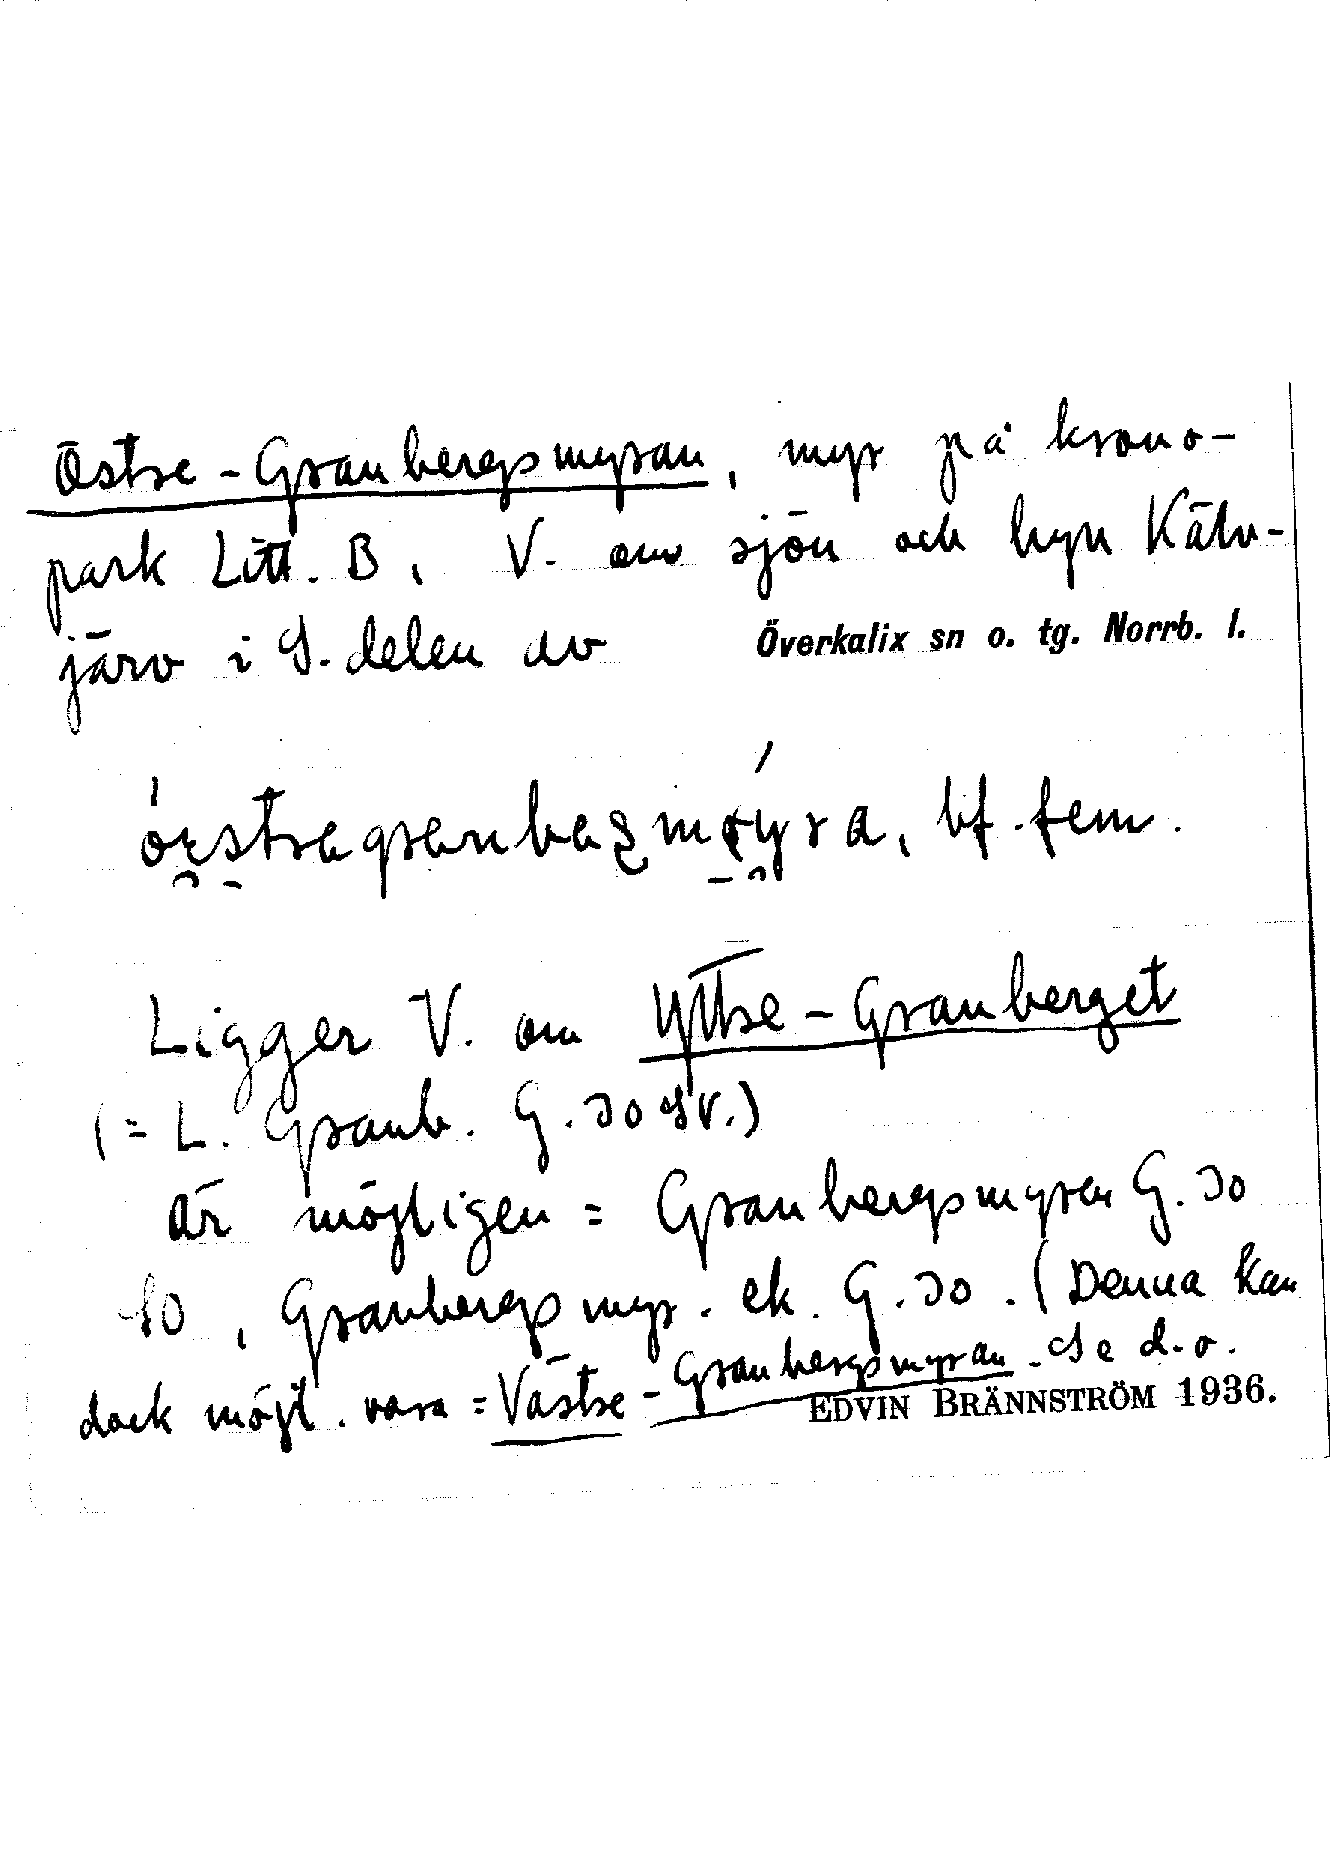 Östre-Granbergsmyran, myr på krono-
park Litt. B, V. om sjön och byn Kälv-
järv i S. delen av Överkalix sn o. tg. Norrb. l.
bf. fem.
Ligger V. om Yttre-Granberget
(= L. Granb. G. 30 SV.)
Är möjligen = Granbergsmyren G. 30
SO, Granbergsmyr. ek. G. 30. (Denna kan
dock möjl. vara = Västre-Granbergsmyran. Se d.o.
EDVIN BRÄNNSTRÖM 1936.